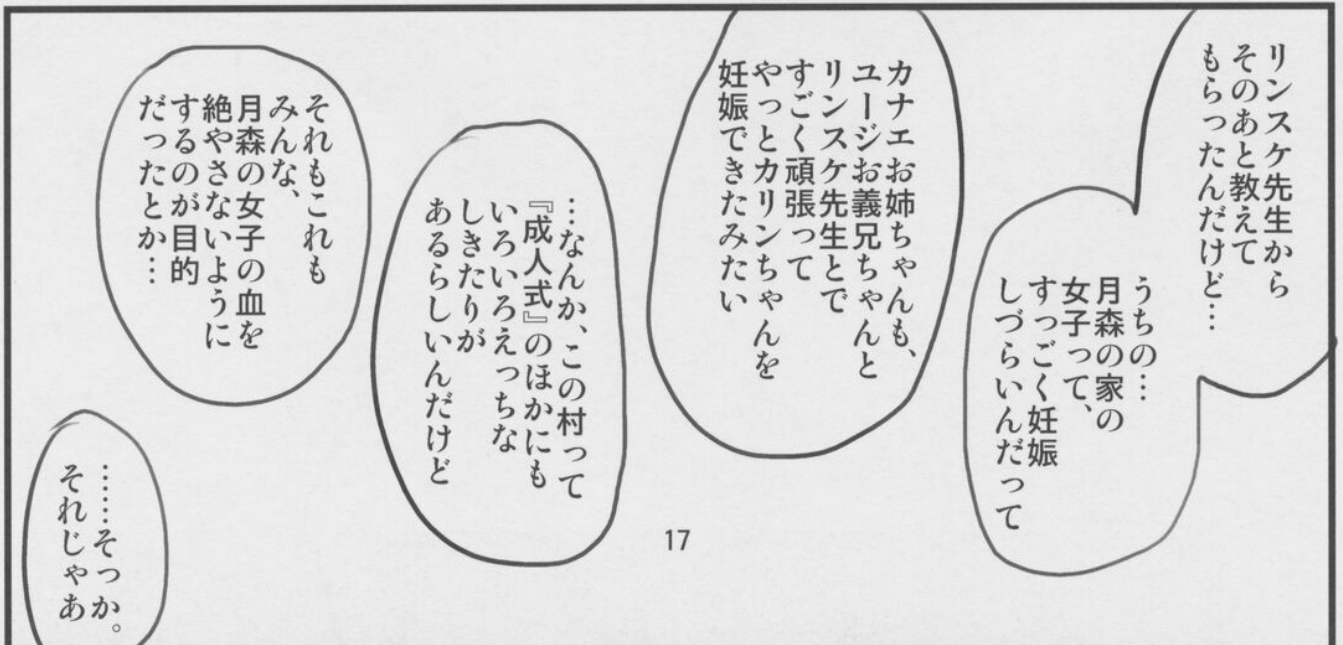 リンスケ先生から
そのあと教えて
もらったんだけど…
うちの…
月森の家の
女子って、
すっごく妊娠
しづらいんだって
カナエお姉ちゃんも、
ユージお義兄ちゃんと
リンスケ先生とで
すごく頑張って
やっとカリンちゃんを
妊娠できたみたい
…なんか、この村って
『成人式』のほかにも
いろいろえっちな
しきたりが
あるらしいんだけど
それもこれも
みんな、
月森の女子の血を
絶やさないように
するのが目的
だったとか…
……そっか。
それじゃあ
17